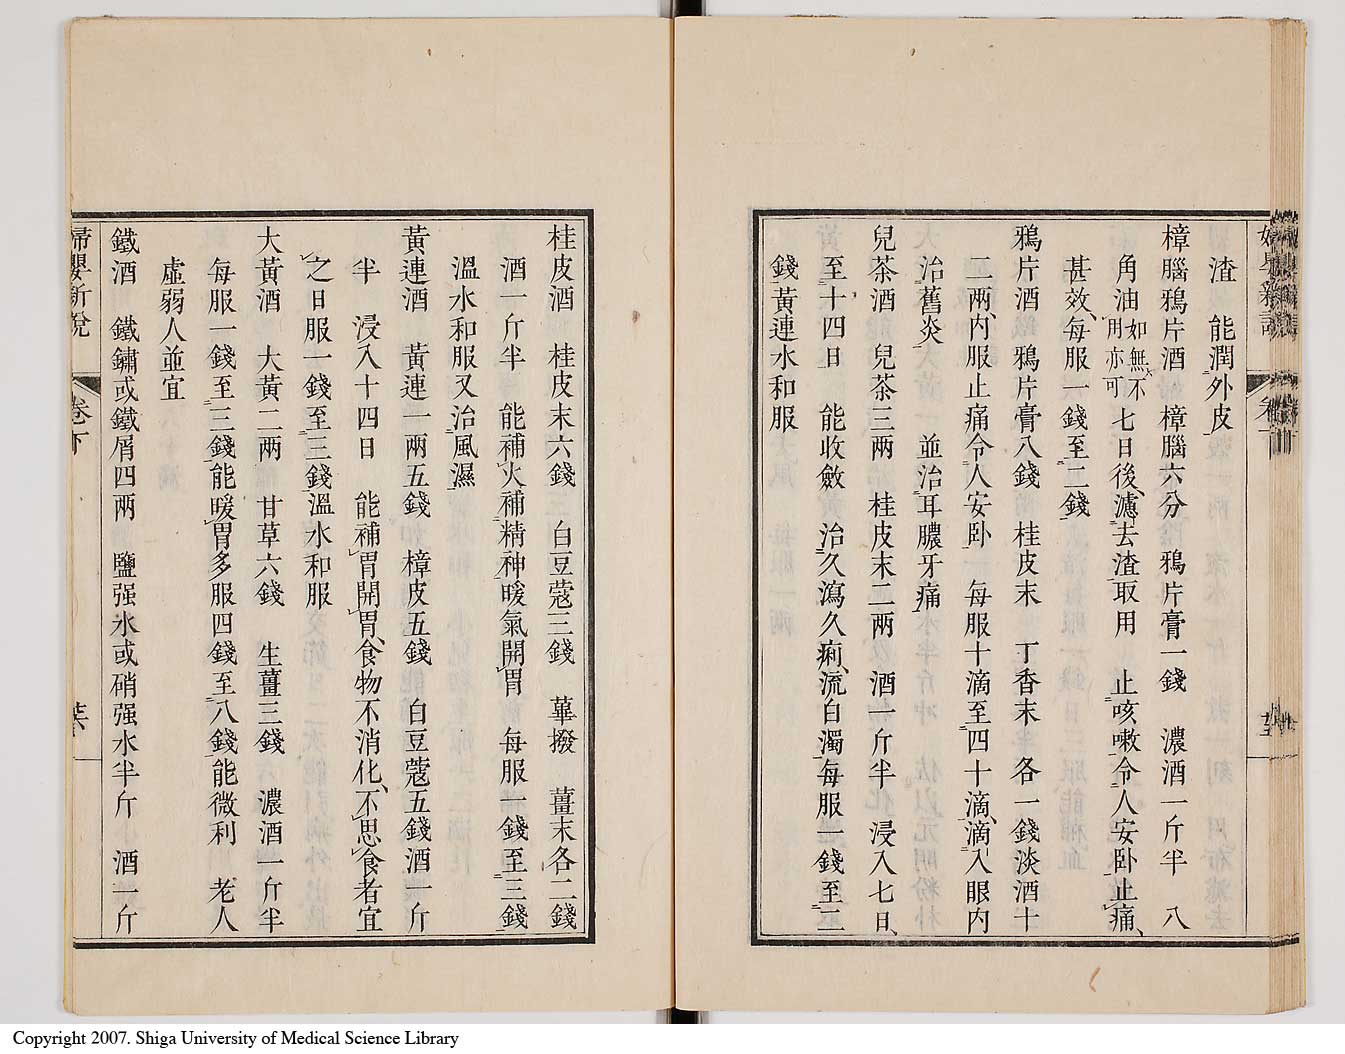 渣　能潤外皮
樟腦鴉片酒　樟腦六分　鴉片膏一錢　濃酒一斤半　八
角油如無不用亦可七日後、濾去渣取用　止咳嗽令人安卧止痛、
甚效、每服一錢至二錢
鴉片酒　鴉片膏八錢　桂皮末　丁香末各一錢淡酒十
二兩、内服止痛令人安卧　每服十滴至四十滴、滴入眼内
治舊炎　並治耳膿牙痛
兒茶酒　兒茶三兩　桂皮末二兩　酒一斤半　浸入七日、
至十四日　能收斂　治久瀉久痢、流白濁、每服一錢至二
錢黃連水和服
桂皮酒　桂皮末六錢　白豆蔻三錢　蓽撥　薑末各二錢
酒一斤半　能補火補精神暖氣開胃　每服一錢至三錢
溫水和服又治風濕
黃連酒　黃連一兩五錢　樟皮五錢　白豆蔻五錢酒一斤
半　浸入十四日　能補胃開胃、食物不消化、不思食者宜
之日服一錢至三錢溫水和服
大黃酒　大黃二兩　甘草六錢　生薑三錢　濃酒一斤半
每服一錢至三錢能暖胃多服四錢至八錢能微利　老人
虛弱人並宜
鐵酒　鐵鏽或鐵屑四兩　鹽强水或硝强水半斤　酒一斤
婦嬰新說　卷下
Copyright 2007. Shiga University of Medical Science Library